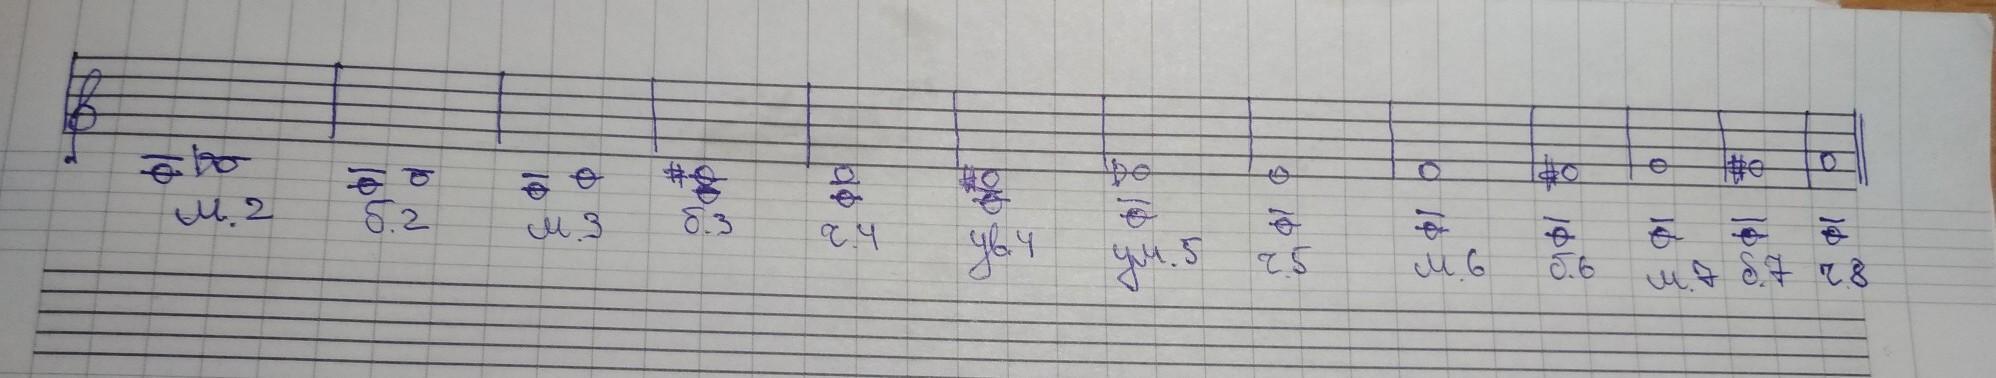 м.2 б.2 м.3 б.3 ч.4 ув.4 ум.5 ч.5 м.6 б.6 м.7 б.7 ч.8